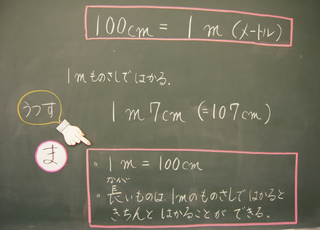 100cm = 1m (メートル)
1mものさしではかる。
うつす
1m7cm (=107cm)
ま
・1m = 100cm
なが
・長いものは、1mのものさしではかると
きちんとはかることができる。